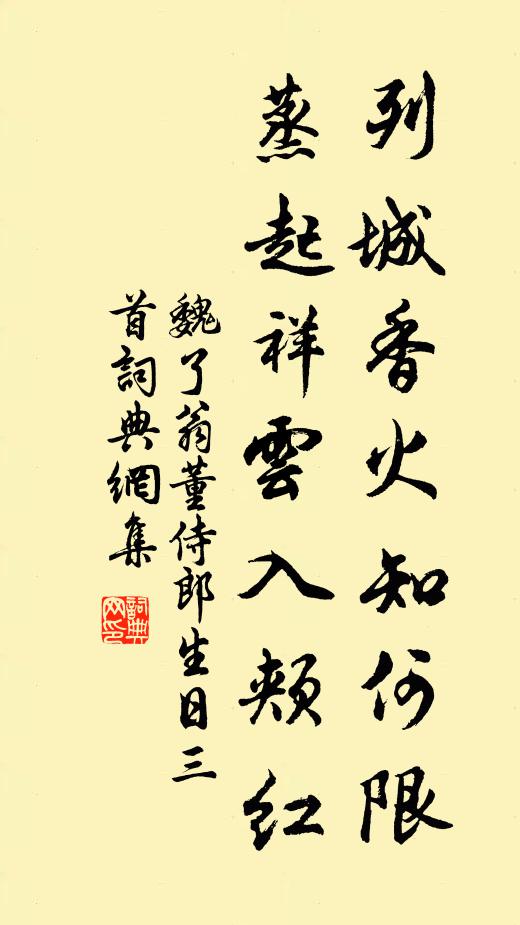 列城香火知何限
蒸起祥雲入頰紅
魏了翁董侍郎生日三
首詞典網集
詞典
网印